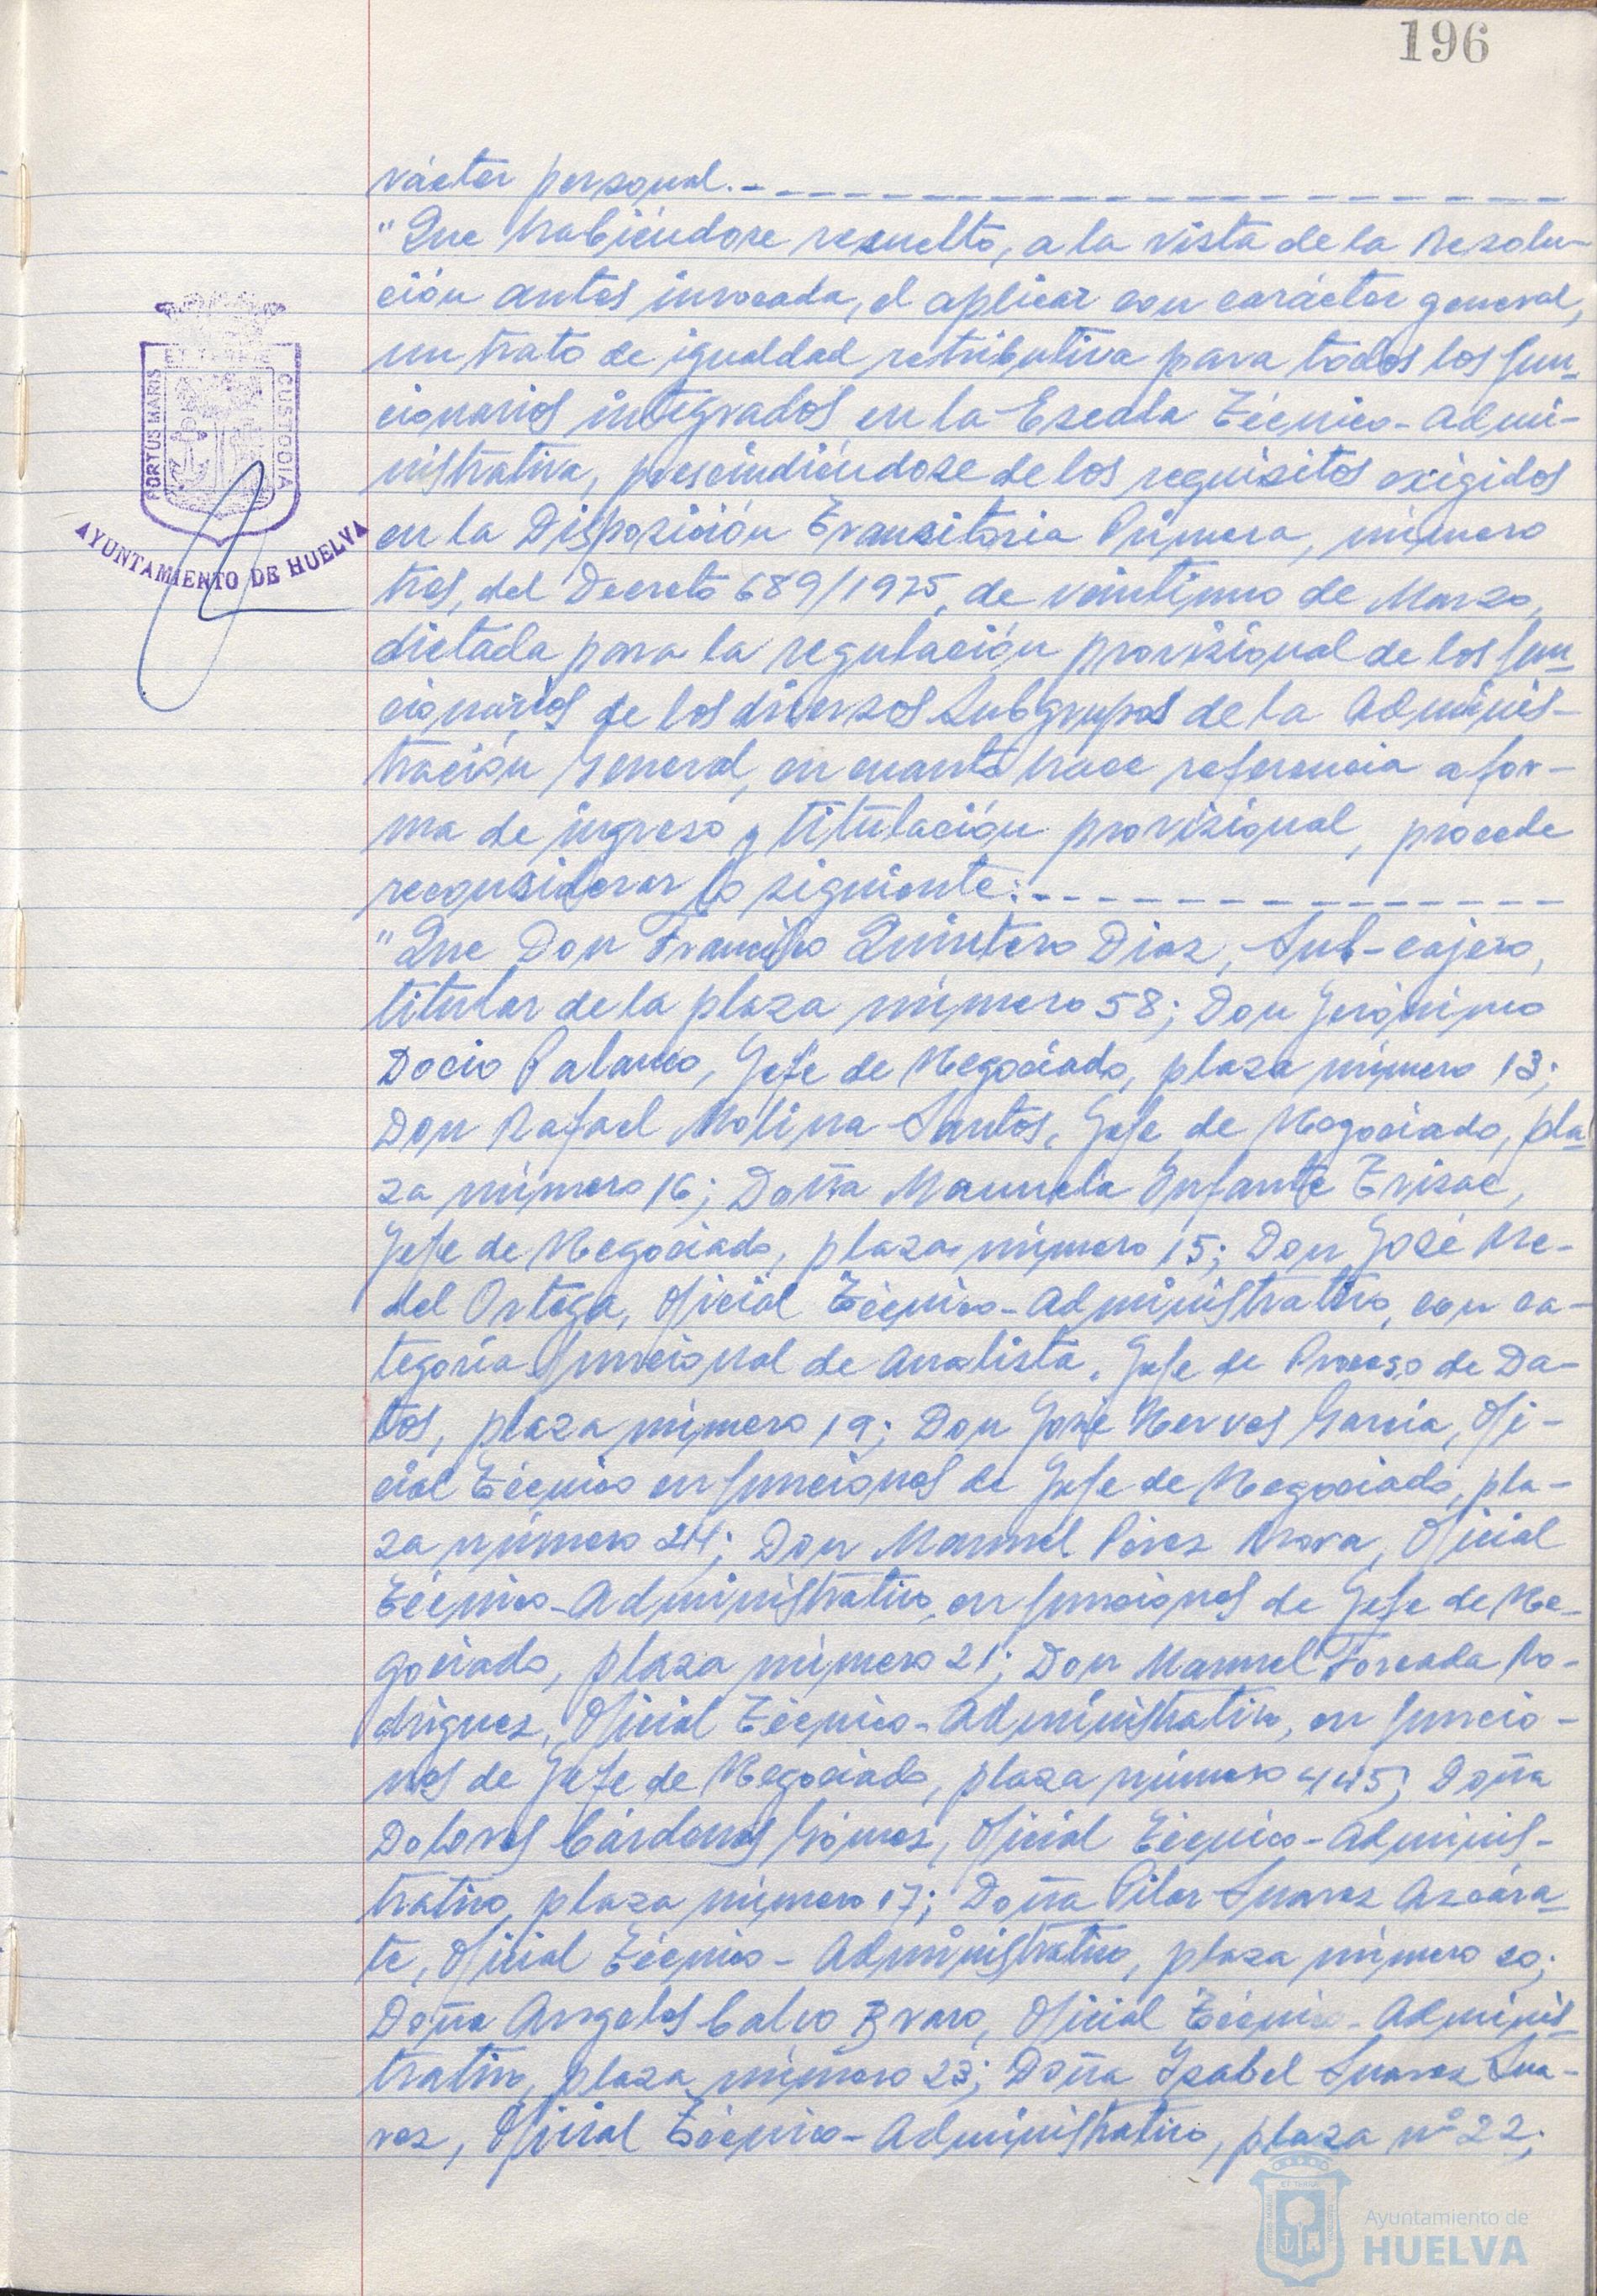 196
rácter personal.-
"Que habiéndose resuelto, a la vista de la Resolu-
ción antes invocada, el aplicar con carácter general,
un trato de igualdad retributiva para todos los fun-
cionarios integrados en la Escala Técnico-Admi-
nistrativa, prescindiéndose de los requisitos exigidos
en la Disposición Transitoria Primera, número
tres, del Decreto 689/1975, de veintiuno de Marzo,
dictada para la regulación provisional de los fun-
cionarios de los diversos Subgrupos de la Adminis-
tración General, en cuanto hace referencia a for-
ma de ingreso y titulación provisional, procede
reconsiderar lo siguiente:-
"Que Don Francisco Quintero Diaz, Sub-cajero,
titular de la plaza número 58; Don Jerónimo
Docio Palanco, Jefe de Negociado, plaza número 13;
Don Rafael Molina Santos, Jefe de Negociado, pla-
za número 16; Doña Manuela Infante Trisac,
Jefe de Negociado, plaza número 15; Don José Me-
del Ortega, Oficial Técnico-Administrativo, con ca-
tegoría funcional de Analista, Jefe de Proceso de Da-
tos, plaza número 19; Don José Nerves García, Ofi-
cial Técnico en funciones de Jefe de Negociado, pla-
za número 24; Don Manuel Pérez Mora, Oficial
Técnico-Administrativo, en funciones de Jefe de Ne-
gociado, plaza número 21; Don Manuel Forcada Ro-
driguez, Oficial Técnico-Administrativo, en funcio-
nes de Jefe de Negociado, plaza número 445; Doña
Dolores Cárdenas Gómez, Oficial Técnico-Adminis-
trativo, plaza número 17; Doña Pilar Suarez Azcára-
te, Oficial Técnico-Administrativo, plaza número 20;
Doña Angeles Calvo Bravo, Oficial Técnico-Adminis-
trativo, plaza número 23; Doña Isabel Suarez Sua-
rez, Oficial Técnico-Administrativo, plaza nº 22;
PORTUS MARIS ET TERRE CUSTODIA
AYUNTAMIENTO DE HUELVA
Ayuntamiento de
HUELVA